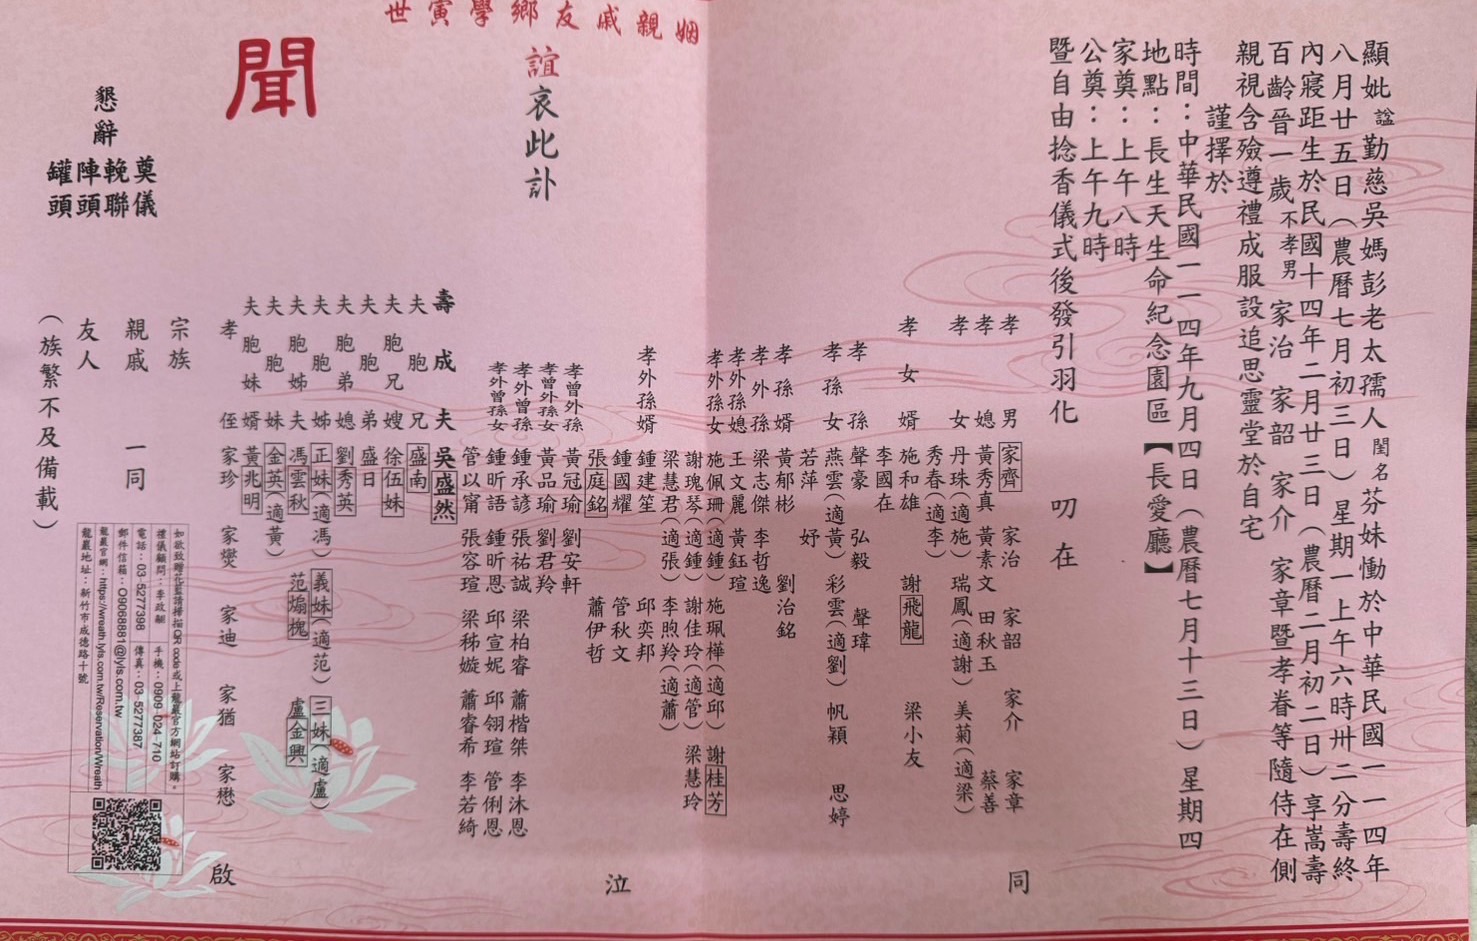 顯妣諡勤慈吳媽彭老太孺人閨名芬妹慟於中華民國一一四年
八月廿五日（農曆七月初三日）星期一上午六時卅二分壽終
內寢距生於民國十四年二月廿三日（農曆二月初二日）享嵩壽
百齡晉一歲不孝男家治 家韶 家介 家章暨孝眷等隨侍在側
親視含殮遵禮成服設追思靈堂於自宅
謹擇於
時間：中華民國一一四年九月四日（農曆七月十三日）星期四
地點：長生天生命紀念園區【長愛廳】
家奠：上午八時
公奠：上午九時
暨自由捻香儀式後發引羽化 叨在
孝男 家齊 家治 家韶 家介 家章
孝媳 黃秀真 黃素文 田秋玉 蔡善
孝女 丹珠（適施） 瑞鳳（適謝） 美菊（適梁）
秀春（適李）
孝女婿 施和雄 謝飛龍 梁小友
李國在
孝孫 聲豪 弘毅 聲瑋
孝孫女 燕雲（適黃） 彩雲（適劉） 帆穎 思婷
若萍 妤
孝孫婿 黃郁彬 劉治銘
孝外孫 梁志傑 李哲逸
孝外孫媳 王文麗 黃鈺瑄
孝外孫女 施佩珊（適鍾） 施珮樺（適邱） 謝桂芳
謝瑰琴（適鍾） 謝佳玲（適管） 梁慧玲
梁慧君（適張） 李煦羚（適蕭）
孝外孫婿 鍾建笙 邱奕邦
鍾國耀 管秋文
張庭銘 蕭伊哲
孝曾外孫 黃冠瑜 劉安軒
孝曾外孫女 黃品瑜 劉君羚
孝外曾孫 鍾承諺 張祐誠 梁柏睿 蕭楷桀 李沐恩
孝外曾孫女 鍾昕語 鍾昕恩 邱宣妮 邱翎瑄 管俐恩
管以甯 張容瑄 梁秭嫙 蕭睿希 李若綺
同
泣
姻親戚友鄉學寅世
誼哀此訃
聞
壽成夫 吳盛然
夫胞兄 盛南
夫胞兄嫂 徐伍妹
夫胞弟 盛日
夫胞弟媳 劉秀英
夫胞姊 正妹（適馮） 義妹（適范） 三妹（適盧）
夫胞姊夫 馮雲秋 范煸槐 盧金興
夫胞妹 金英（適黃）
夫胞妹婿 黃兆明
孝侄 家珍 家爕 家迪 家猶 家懋
啟
宗族
親戚 一同
友人
（族繁不及備載）
懇辭
奠儀
輓聯
陣頭
罐頭
如欲致贈花籃請掃描QR code或上龍巖官方網站訂購。
禮儀顧問：李政翮 手機：0909-024-710
電話：03-5277398 傳真：03-5277387
郵件信箱：O9068881@lyls.com.tw
龍巖官網：https://wreath.lyls.com.tw/Reservation/Wreath
龍巖地址：新竹市成德路十號